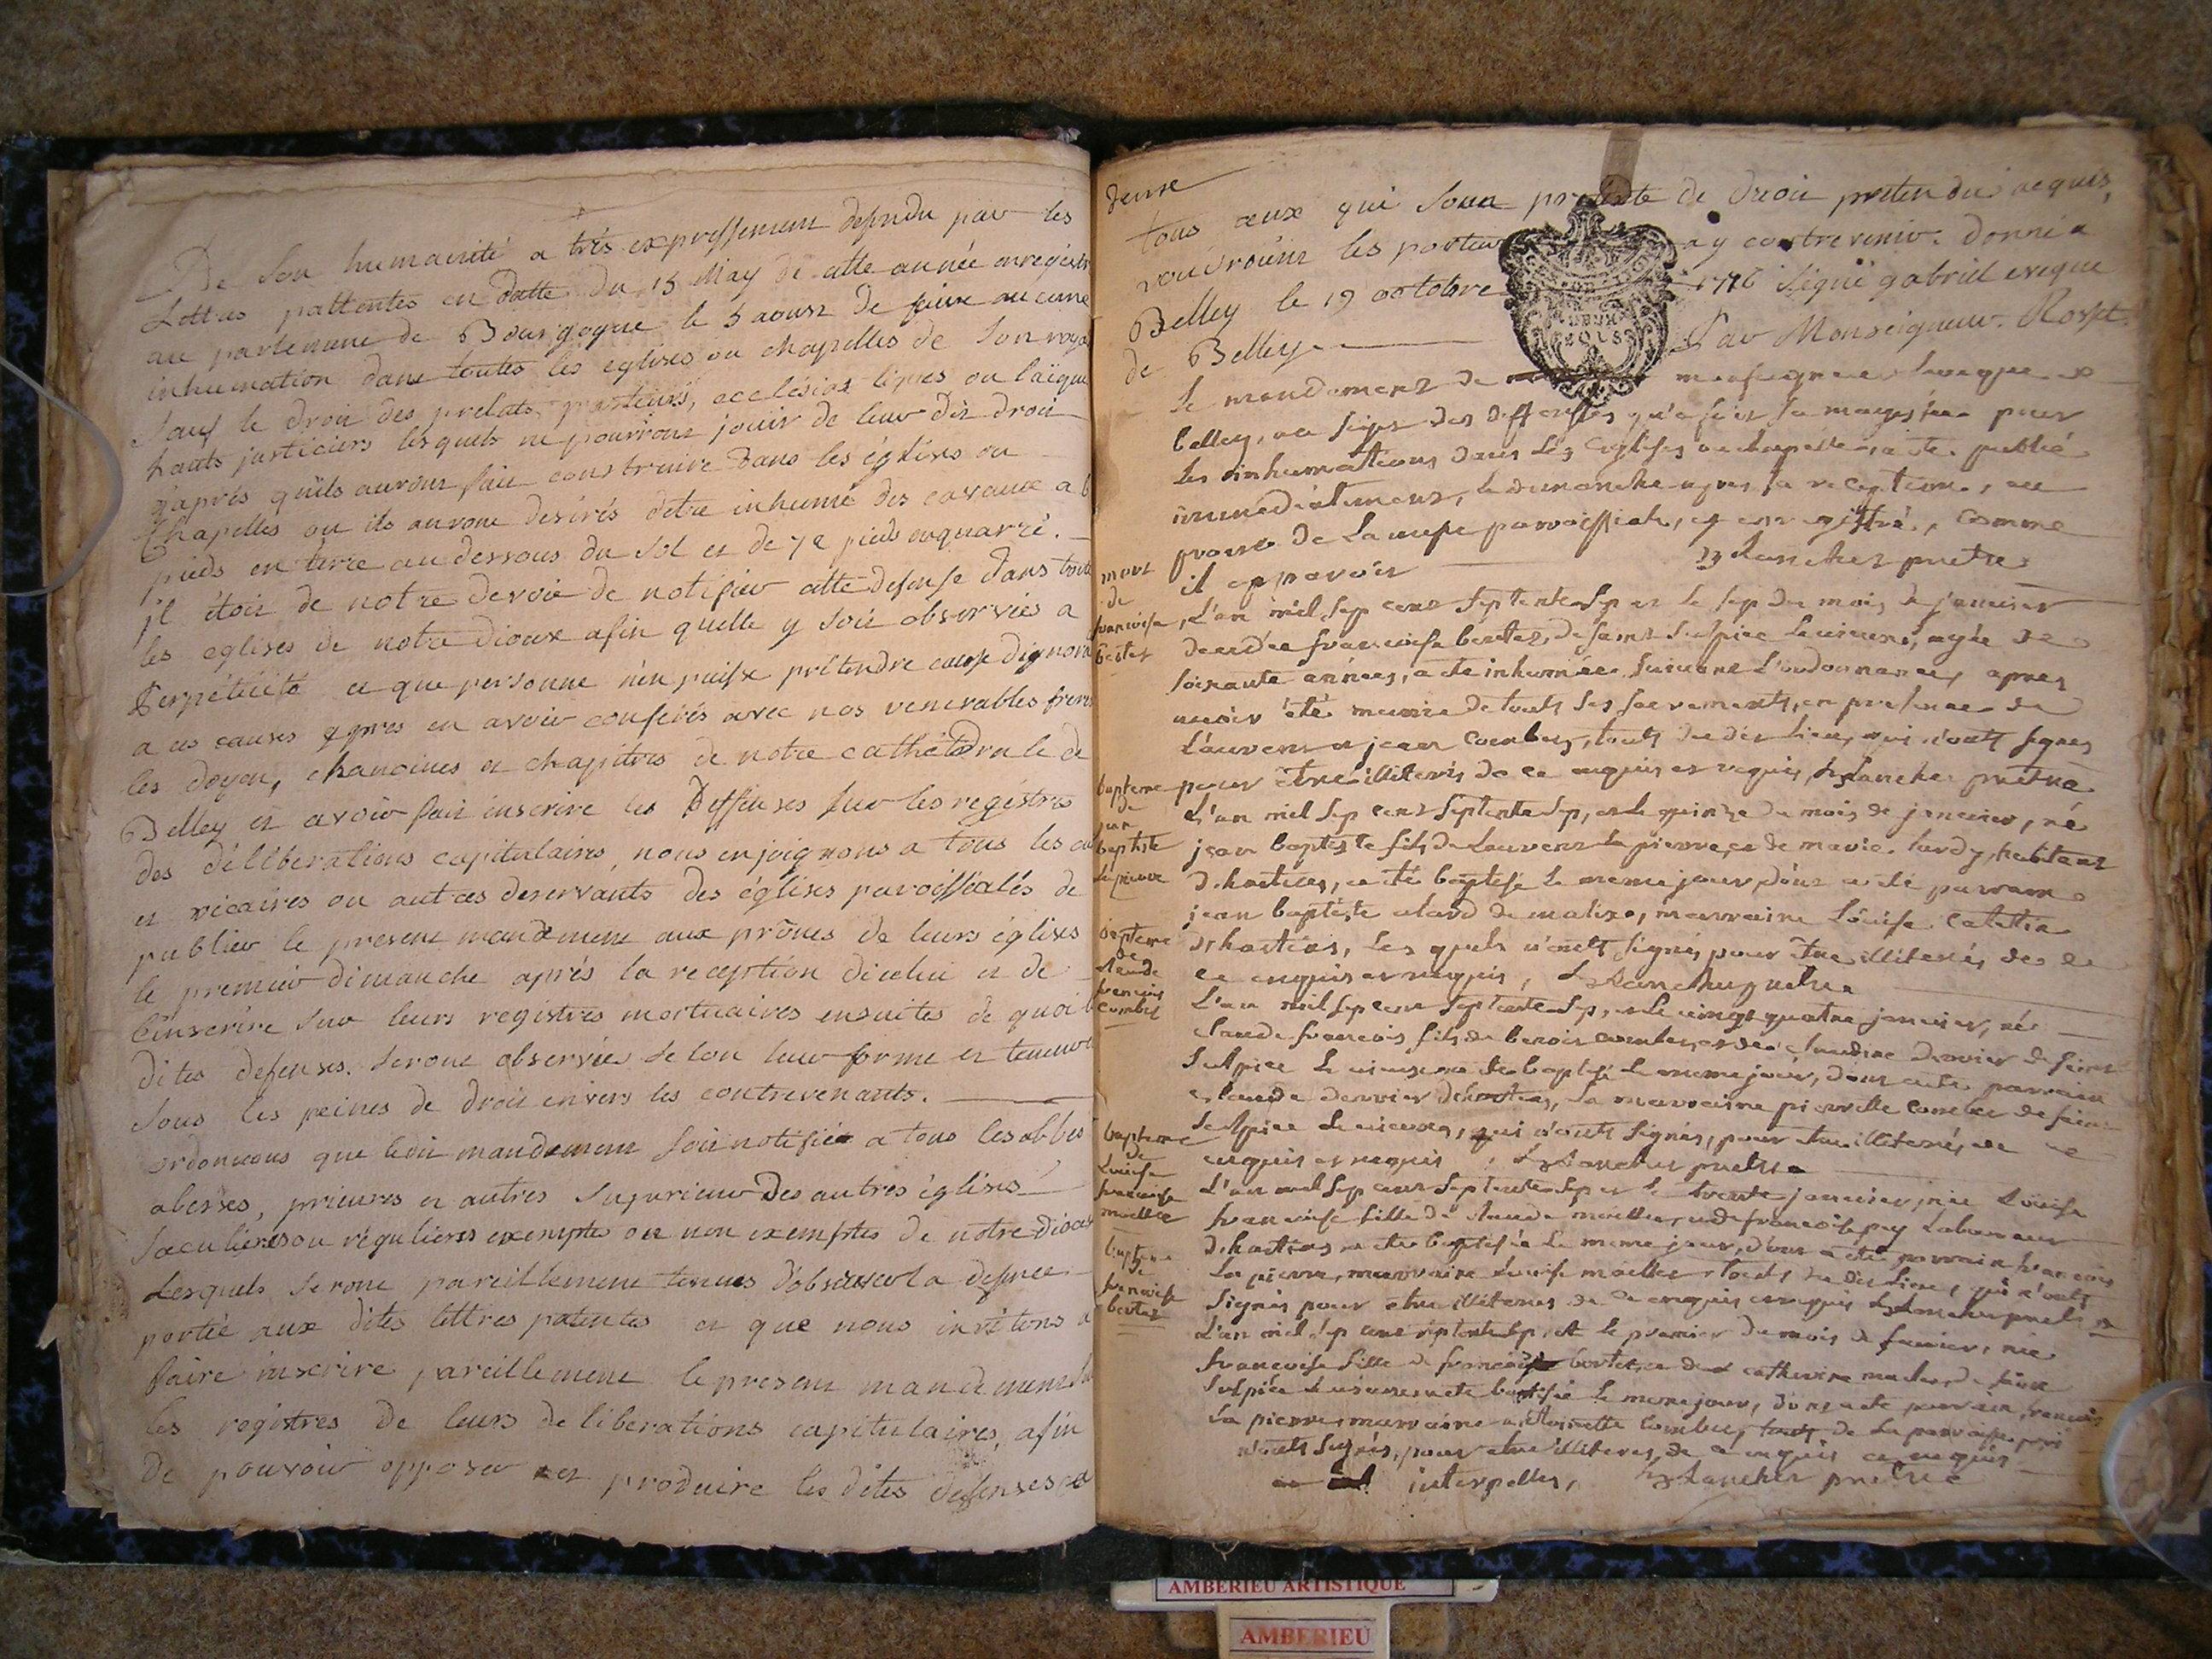 De Son humanité a trés expressement defendu par les
Lettres pattentes en datte du 15 May de cette année enregistr
au parlement de Bourgogne le 5 aoust de faire aucune
inhumation dans toutes les eglises ou chapelles de Son roya
Sauf le droit des prelats, pasteurs, ecclésiastiques ou laïque
hauts justiciers lesquels ne pourront jouir de leur dit droit
qu'aprés quils auront fait construire dans les églises ou
Chapelles ou ils auront desirés d'etre inhumé des caveaux a
pieds en terre au dessous du Sol et de 72 pieds en quarré.
jl étoit de notre devoir de notifier cette defense dans toute
les eglises de notre diocese afin quelle y soit observées a
Perpétuité et que personne n'en puisse prétendre cause d'ignora
a ces causes apres en avoir conferés avec nos venerables freres
les doyen, chanoines et chapitres de notre cathédrale de
Belley et avoir fait inscrire les Deffenses sur les registres
des déliberations capitulaires, nous enjoignons a tous les cu
et vicaires ou autres deservants des églises paroissiales de
publier le present mandement aux prônes de leurs églises
le premier dimanche aprés la reception dicelui et de
l'inscrire sur leurs registres mortuaires ensuites de quoi l
dites defenses seront observées selon leur forme et teneur
sous les peines de droit envers les contrevenants.
ordonnons que ledit mandement soit notifié a tous les abbes
abesses, prieures et autres Superieur des autres églises
Seculieres ou régulieres exempte ou non exemptes de notre dioces
Lesquels seront pareillement tenues d'observer la defence
portée aux dites lettres patentes et que nous invitons a
faire inscrire pareillement le present mandement
les registres de leurs deliberations capitulaires, afin
De pouvoir opposer et produire les dites defenses a
deuxe
tous ceux qui Sous pretexte de droit pretendu acquis,
voudroient les porteurs a y contrevenir. donné a
Belley le 19 octobre 1776 Signé gabriel eveque
de Belley Par Monseigneur. Rosset.
Le mandement de monseigneur leveque de
belley, au sujet des deffenses qu'a fait sa majestée pour
les inhumations dans les Eglises ou chapelle, a été publié
immédiatement, le dimanche apres sa reception, au
prosne de la messe paroissiale, et enregistré, comme
il apparoit Blanchet pretre
mort
de
francoise
bertet
L'an mil sep cent septente sep et le sep du mois de janvier
decedée francoise bertet, de saint sulpice le vieux, agée de
soixante années, a été inhumée suivant l'ordonnance, apres
avoir été munie de touts ses sacrements, en presence de
Lauvent et jean combet, touts du dit lieu, qui n'onts signés
pour être illiterés de ce enquis et requis, Blanchet pretre
bapteme
de
jean
baptiste
lapierre
L'an mil sep cent septente sep, et le quinze du mois de janvier, né
jean baptiste fils de Lauvent lapierre, et de marie tardy, habitant
d'hostices, a été baptisé le meme jour, dont a été parrain
jean baptiste, marraine Louise
d'hostices, les quels n'onts signés pour être illiterés de ce
enquis et requis, Blanchet pretre
bapteme
de
claude
francois
combet
L'an mil sep cent septente sep, et le vingt quatre janvier, né
claude francois fils de benoit combet, et de claudine dervier de saint
sulpice le vieux, a été baptisé le meme jour, dont a été parrain
claude dervier d'hosties, la marraine pierrette combet de saint
sulpice le vieux, qui n'onts signés, pour être illiterés, de ce
enquis et requis, Blanchet pretre
bapteme
de
Louise
francoise
moellet
L'an mil sep cent septente sep et le trente janvier, née Louise
francoise fille de claude moellet, et de francoise pey laboureur
d'hosties a été baptisée le meme jour, dont a été parrain francois
La pierre, marraine Louise moellet, touts du dit lieu, qui n'onts
signés pour être illiterés de ce enquis et requis Blanchet pretre
bapteme
de
francoise
bertet
L'an mil sep cent septente sep, et le premier du mois de fevrier, née
francoise fille de francois bertet, et de catherine, de saint
sulpice le vieux, a été baptisée le meme jour, dont a été parrain francois
La pierre, marraine antoinette combet de la paroisse, qui
n'onts signés, pour être illiterés, de ce enquis et requis
interpellés, Blanchet pretre
AMBERIEU ARTISTIQUE
AMBERIEU